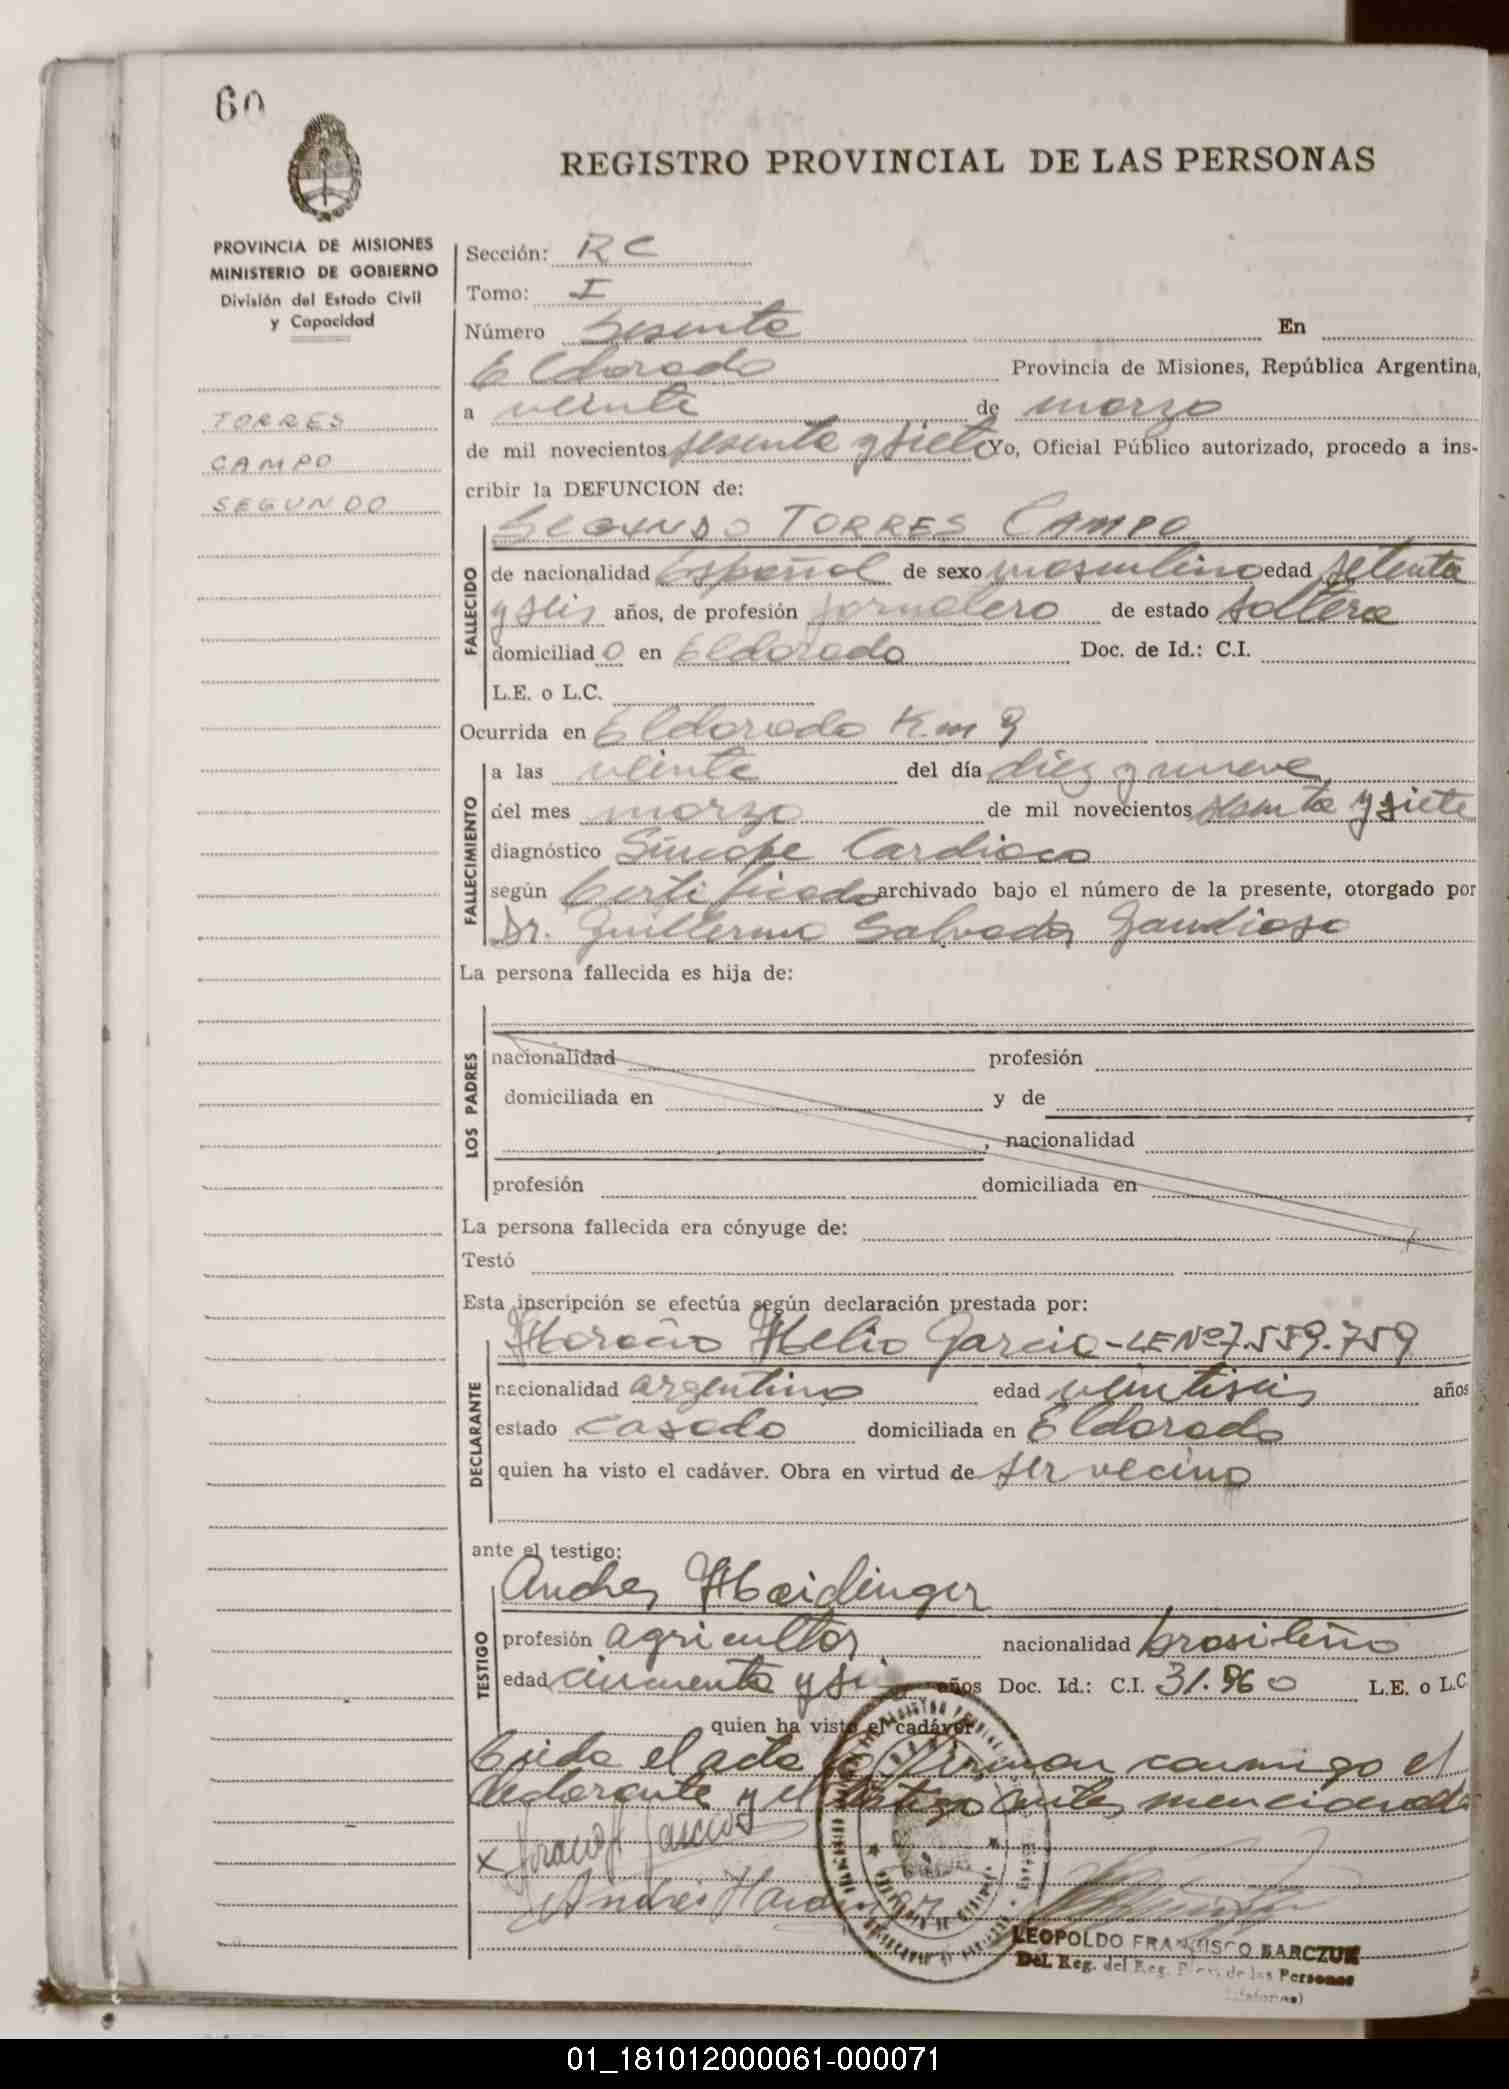 60
REGISTRO PROVINCIAL DE LAS PERSONAS
PROVINCIA DE MISIONES
MINISTERIO DE GOBIERNO
División del Estado Civil
y Capacidad
TORRES
CAMPO
SEGUNDO
Sección: RC
Tomo: I
Número Sesenta En
Eldorado Provincia de Misiones, República Argentina,
a veinte de marzo
de mil novecientos sesenta y siete Yo, Oficial Público autorizado, procedo a ins-
cribir la DEFUNCION de:
FALLECIDO
SEGUNDO TORRES CAMPO
de nacionalidad Español de sexo masculino edad setenta
y seis años, de profesión jornalero de estado soltero
domiciliado en Eldorado Doc. de Id.: C.I.
L.E. o L.C.
Ocurrida en Eldorado Km 9
FALLECIMIENTO
a las veinte del día diez y nueve
del mes marzo de mil novecientos sesenta y siete
diagnóstico Síncope Cardiaco
según Certificado archivado bajo el número de la presente, otorgado por
Dr. Guillermo Salvador Gaudioso
La persona fallecida es hija de:
LOS PADRES
nacionalidad profesión
domiciliada en y de
, nacionalidad
profesión domiciliada en
La persona fallecida era cónyuge de:
Testó
Esta inscripción se efectúa según declaración prestada por:
DECLARANTE
Horacio Helio Garcia - LE Nº 7.559.759
nacionalidad argentino edad veintiseis años
estado casado domiciliada en Eldorado
quien ha visto el cadáver. Obra en virtud de ser vecino
ante el testigo:
TESTIGO
Andres Haidinger
profesión agricultor nacionalidad brasileño
edad cincuenta y seis años Doc. Id.: C.I. 31.960 L.E. o L.C.
quien ha visto el cadáver.
Leida el acta la firman conmigo el
declarante y el testigo antes mencionado
x Horacio H Garcia
Andres
LEOPOLDO FRANCISCO BARCZUK
Del. Reg. del Reg. Prov. de las Personas
(Misiones)
01_181012000061-000071